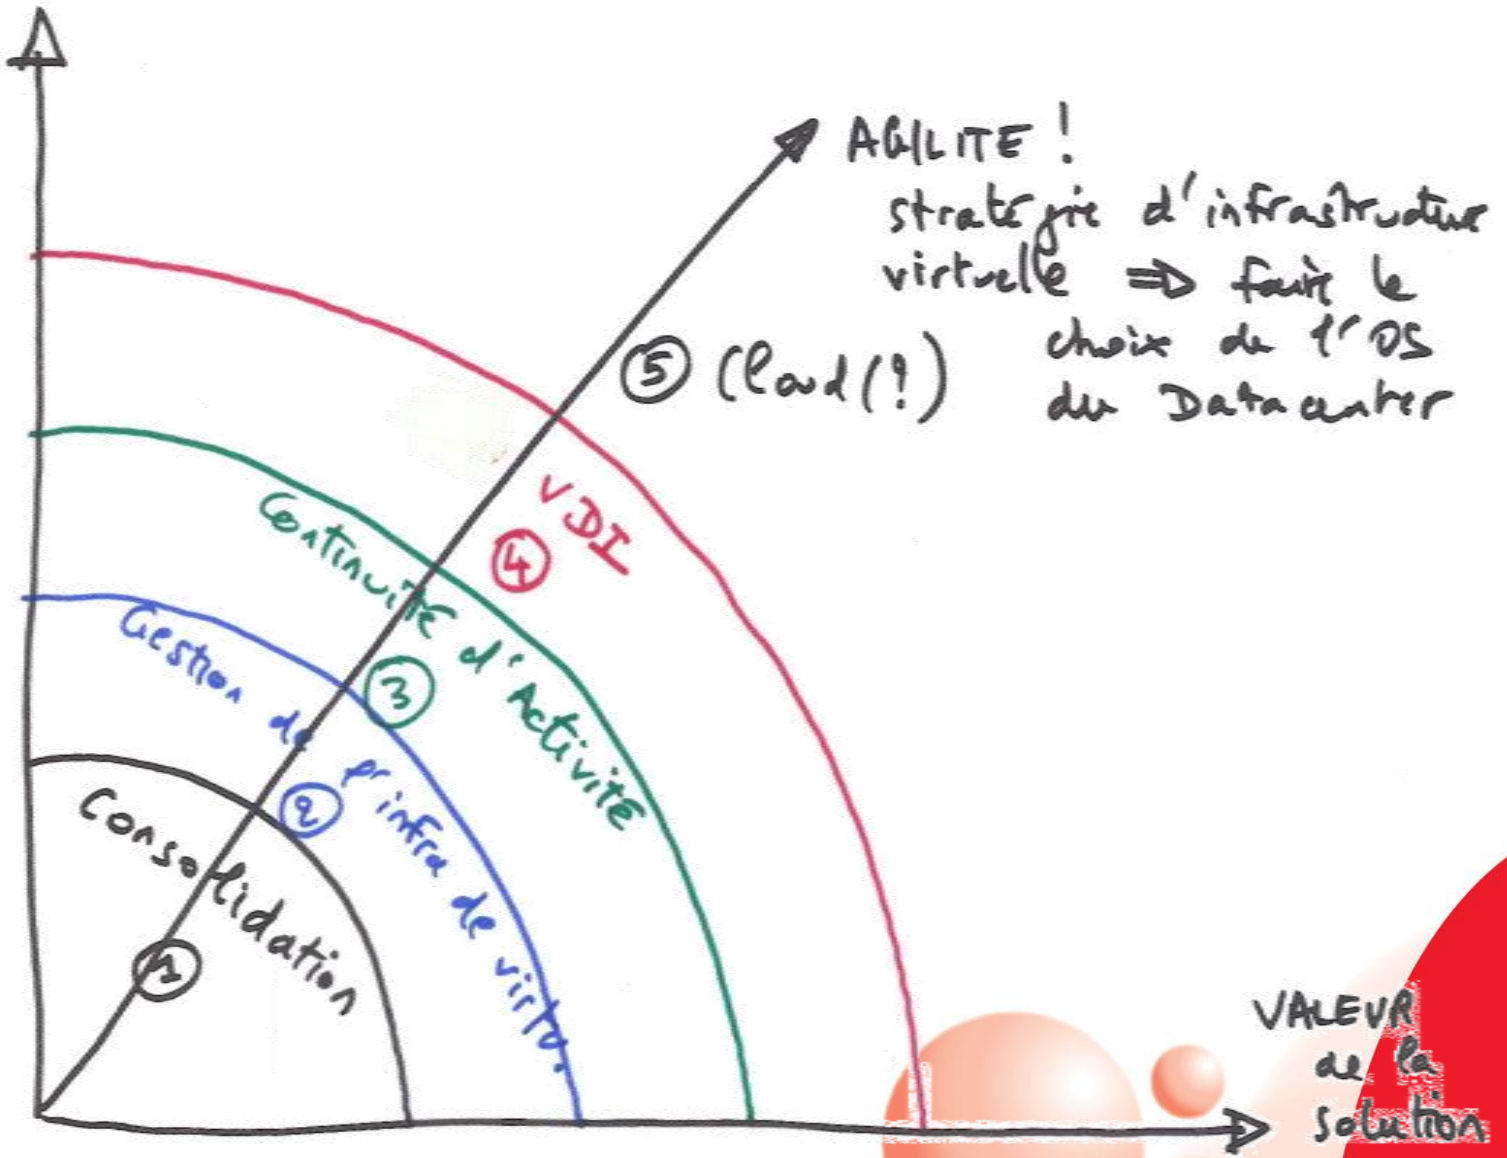 AGILITE !
stratégie d'infrastructure
virtuelle => faire le
choix de l'OS
du Datacenter
5 Cloud(!)
VDI
4
Continuité d'Activité
3
Gestion de l'infra de virtu.
2
Consolidation
1
VALEUR
de la
solution